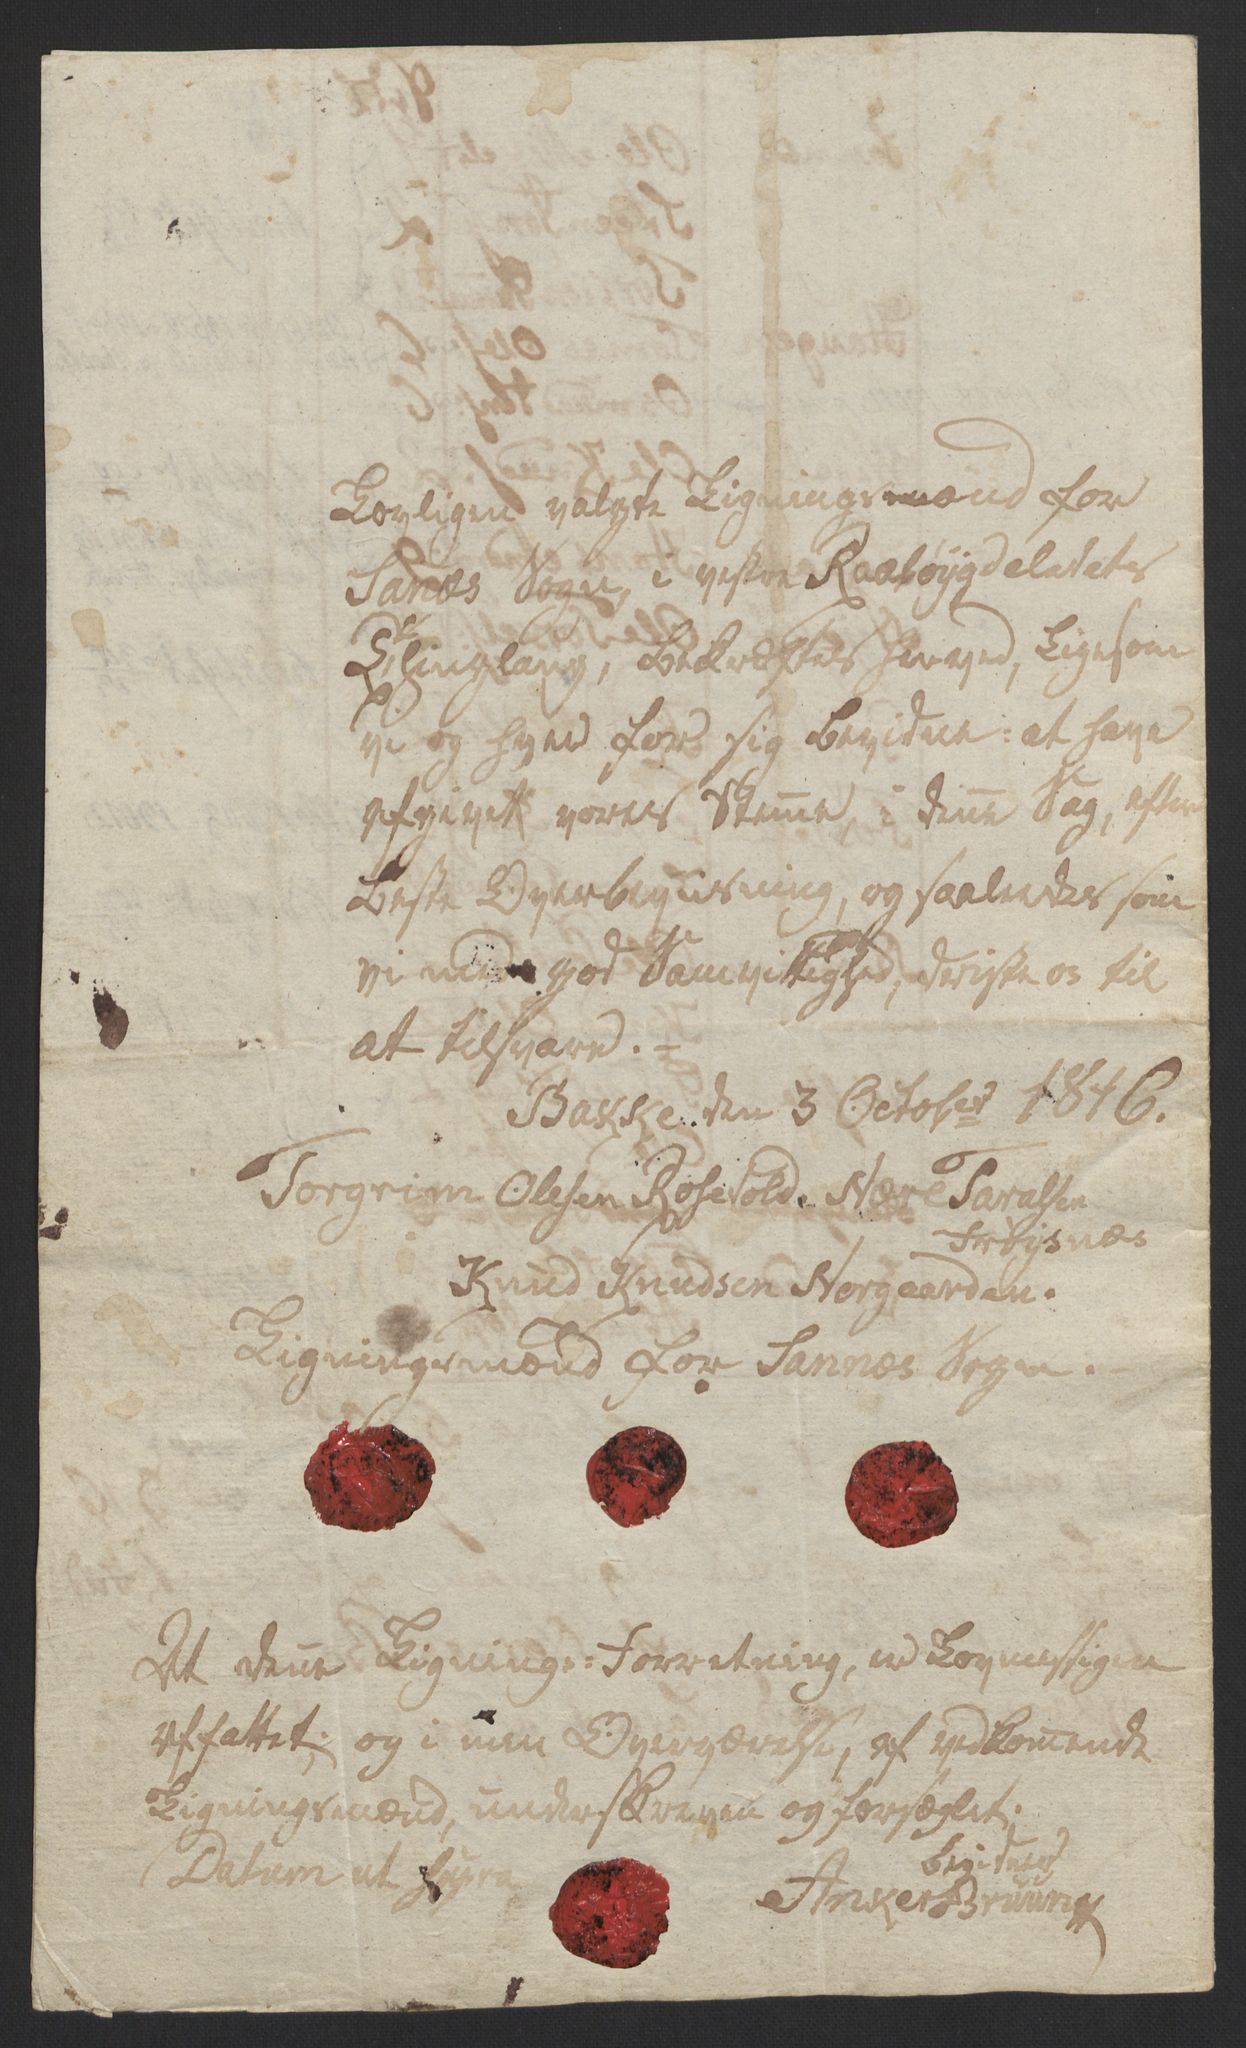 Lovligen valgte Ligningsmænd for
Sanæs Sogn, i vestre Raabøygdeletets
Thinglaug, bekræftes herved, Ligesom
vi og hver for sig bevidne: at have
afgivet vores Stemme, i denne Sag, efter
beste Overbeviisning, og saaledes som
vi med god Samvittighed, driste os til
at tilsvare. -
Bakke den 3 October 1846.
Torgrim Olesen Rosevold. Nære Taralsen
Frøysnæs
Knud Knudsen Norgaarden.
Ligningsmænd for Sannæs Sogn.
At denne Lignings-Forretning, er Lovmessigen
affattet, og i min Overværelse, af vedkommende
Ligningsmænd, underskreven og forseglet.
bevidner
Datum ut supra
Anker Bruun